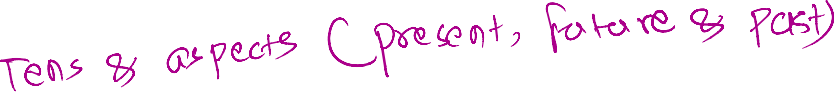 Tens & aspects (present, future & past)